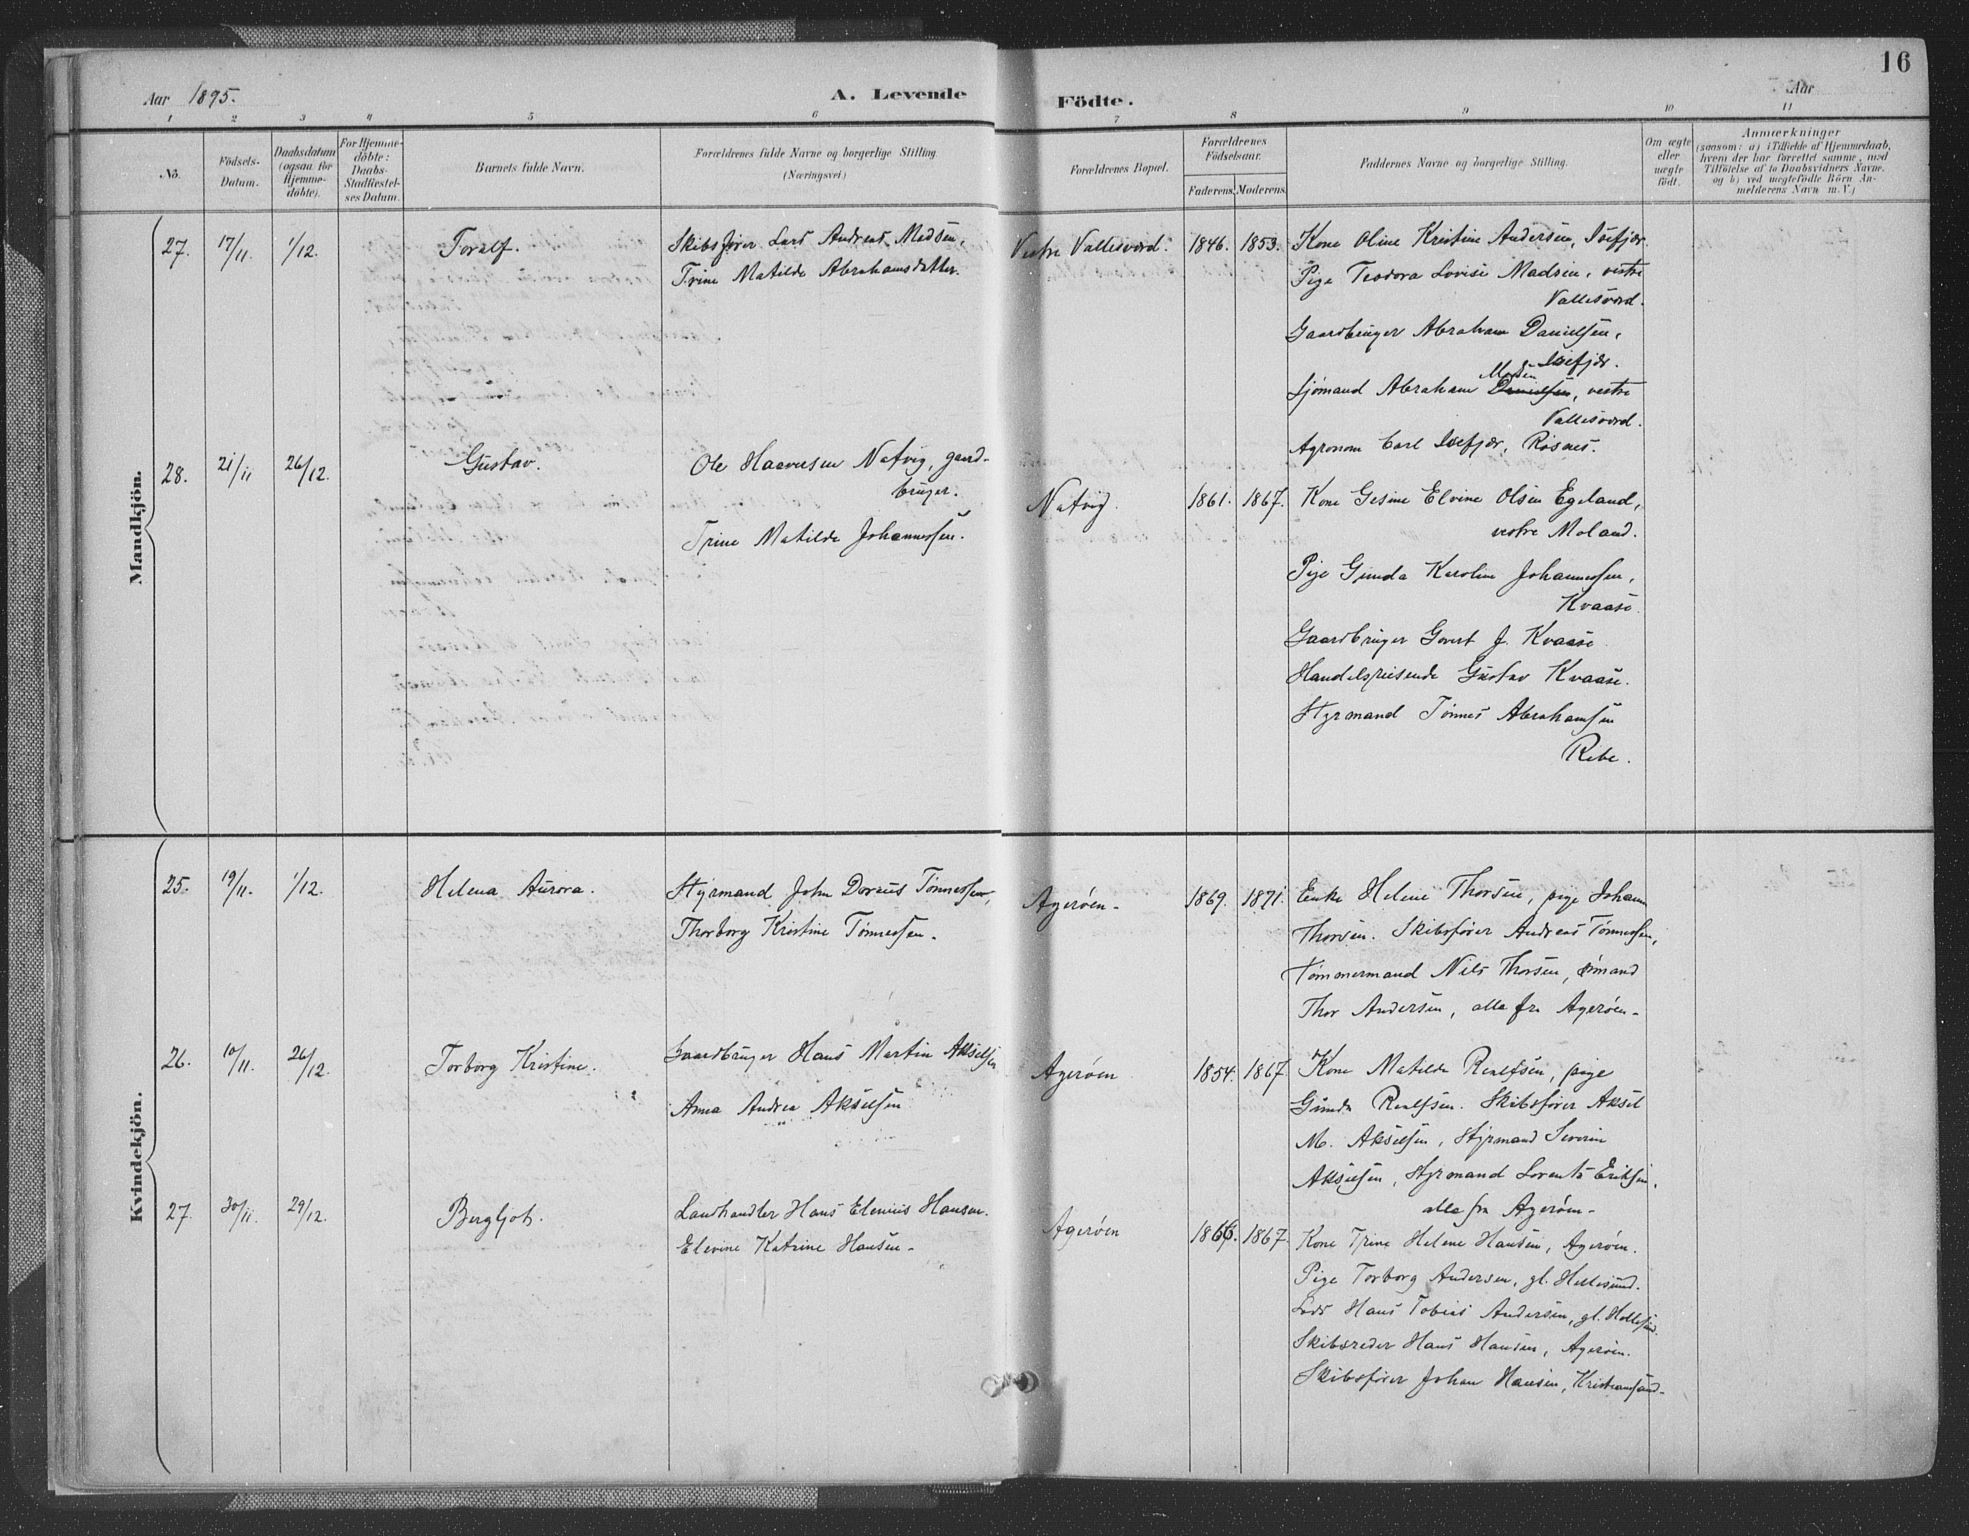 16
Aar 1895. A. Levende Födte. Aar
1 2 3 4 5 6 7 8 9 10 11
No.
Födsels-
Datum.
Daabsdatum
(ogsaa for
Hjemme-
döbte).
For Hjemme-
döbte:
Daabs-
Stadfæstel-
ses Datum.
Barnets fulde Navn.
Forældrenes fulde Navne og borgerlige Stilling
(Næringsvei)
Forældrenes Bopæl.
Forældrenes
Födselsaar.
Faderens. Moderens.
Faddernes Navne og borgerlige Stilling.
Om ægte
eller
uægte
født.
Anmærkninger
(saasom: a) i Tilfælde af Hjemmedaab,
hvem der har forrettet samme, med
Tilföielse af to Daabsvidners Navne.
og b) ved uægtefödte Börn An-
melderens Navn m. V.)
Mandkjön.
27. 17/11 1/12. Toralf.
Skibsfører Lars Andreas Madsen,
Trine Matilde Abrahamsdatter.
Vestre Vallesværd. 1846. 1853.
Kone Oline Kristine Andersen, Isefjær.
Pige Teodora Lovise Madsen, vestre
Vallesværd.
Gaardbruger Abraham Danielsen,
Isefjær.
Madsen
Sjømand Abraham Danielsen, vestre
Vallesværd.
Agronom Carl Isefjær, Røsnes.
28. 21/11 26/12. Gustav.
Ole Haaversen Natvig, gaard-
bruger.
Trine Matilde Johannessen.
Natvig. 1861. 1867.
Kone Gesine Elvine Olsen Egeland,
vestre Moland.
Pige Gunda Karoline Johannessen,
Kvaase.
Gaardbruger Govert J. Kvaase
Handelsreisende Gustav Kvaase.
Styrmand Tønnes Abrahamsen
Ribe.
Kvindekjön.
25. 19/11. 1/12. Helena Aurora.
Styrmand John Doreus Tønnessen,
Thorborg Kristine Tønnessen.
Agerøen. 1869. 1871.
Enke Helene Thorsen, pige Johanne
Thorsen. Skibsfører Andreas Tønnessen,
Tømmermand Nils Thorsen, sømand
Thor Andersen, alle fra Agerøen.
26. 10/11. 26/12. Torborg Kristine.
Gaardbruger Hans Martin Akselsen
Anna Andrea Akselsen
Agerøen 1854. 1867
Kone Matilde Realfsen, pige
Gunda Realfsen. Skibsfører Aksel
M. Akselsen, Styrmand Severin
Akselsen, Styrmand Lorents Eriksen,
alle fra Agerøen.
27. 30/11. 29/12. Bergljot.
Landhandler Hans Elenius Hansen.
Elevine Katrine Hansen.
Agerøen 1866. 1867
Kone Trine Helene Hansen, Agerøen.
Pige Torborg Andersen, gl. Hellesund.
Lods Hans Tobias Andersen, gl. Hellesund.
Skibsreder Hans Hansen, Agerøen.
Skibsfører Johan Hansen, Kristiansand.